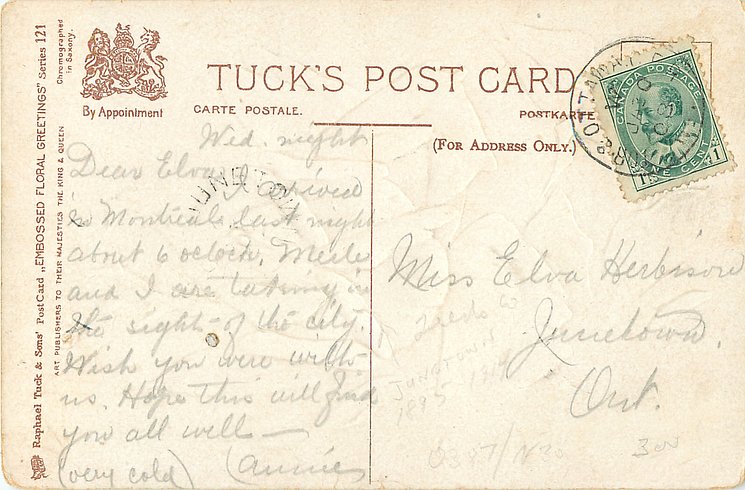 TUCK'S POST CARD
CARTE POSTALE.
POSTKARTE
(FOR ADDRESS ONLY.)
By Appointment
Raphael Tuck & Sons' Post Card „EMBOSSED FLORAL GREETINGS" Series 121
ART PUBLISHERS TO THEIR MAJESTIES THE KING & QUEEN
Chromographed
in Saxony.
CANADA POSTAGE
1 ONE CENT 1
OTTAWA
JUNETOWN
Wed. night
Dear Elva I arrived
in Montreal last night
about 6 oclock. Merle
and I are taking in
the sight of the city.
Wish you were with
us. Hope this will find
you all well —
(very cold) Annie
Miss Elva Herbison
Junetown.
Ont.
1895
300